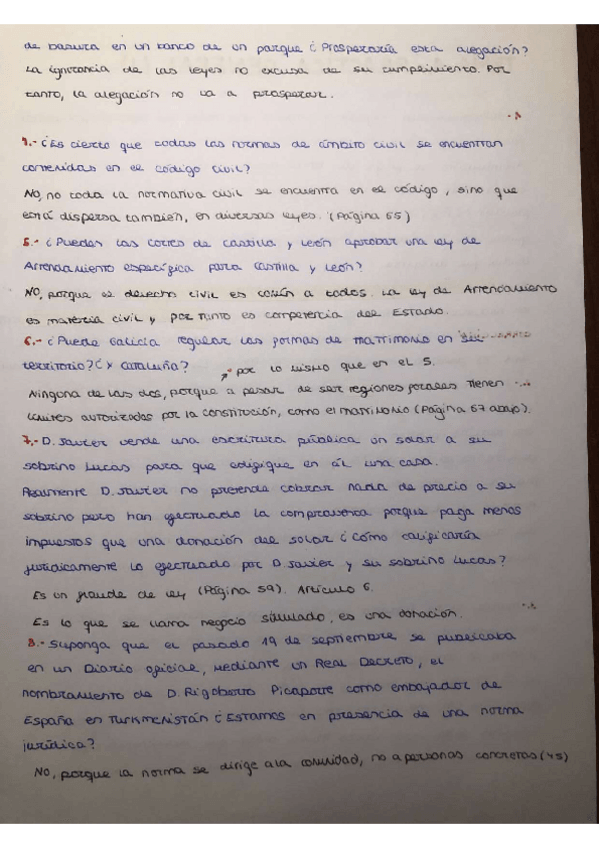 de basura en un banco de un parque ¿Prosperaría esta alegación?
La ignorancia de las leyes no excusa de su cumplimiento. Por
tanto, la alegación no va a prosperar.
4.- ¿Es cierto que todas las normas de ámbito civil se encuentran
contenidas en el código civil?
No, no toda la normativa civil se encuentra en el código, sino que
está dispersa también, en diversas leyes. (Página 65)
5.- ¿Puedes las cortes de Castilla y León aprobar una ley de
Arrendamiento específica para Castilla y León?
NO, porque el derecho civil es común a todos. La ley de Arrendamiento
es materia civil y por tanto es competencia del Estado.
6.- ¿Puede Galicia regular las formas de matrimonio en su
territorio? ¿y Cataluña?
por lo mismo que en el 5.
Ninguna de las dos, porque a pesar de ser regiones forales tienen
límites autorizados por la constitución, como el matrimonio (Página 67 abajo).
7.- D. Javier vende una escritura pública un solar a su
sobrino Lucas para que edifique en él una casa.
Realmente D. Javier no pretende cobrar nada de precio a su
sobrino pero han efectuado la compraventa porque paga menos
impuestos que una donación del solar ¿Cómo calificaría
jurídicamente lo efectuado por D. Javier y su sobrino Lucas?
Es un fraude de ley (Página 59). Artículo 6.
Es lo que se llama negocio simulado, es una donación.
8.- Suponga que el pasado 19 de septiembre se publicaba
en un Diario oficial, mediante un Real Decreto, el
nombramiento de D. Rigoberto Picaporte como embajador de
España en Turkmenistán ¿Estamos en presencia de una norma
jurídica?
No, porque la norma se dirige a la comunidad, no a personas concretas (45)